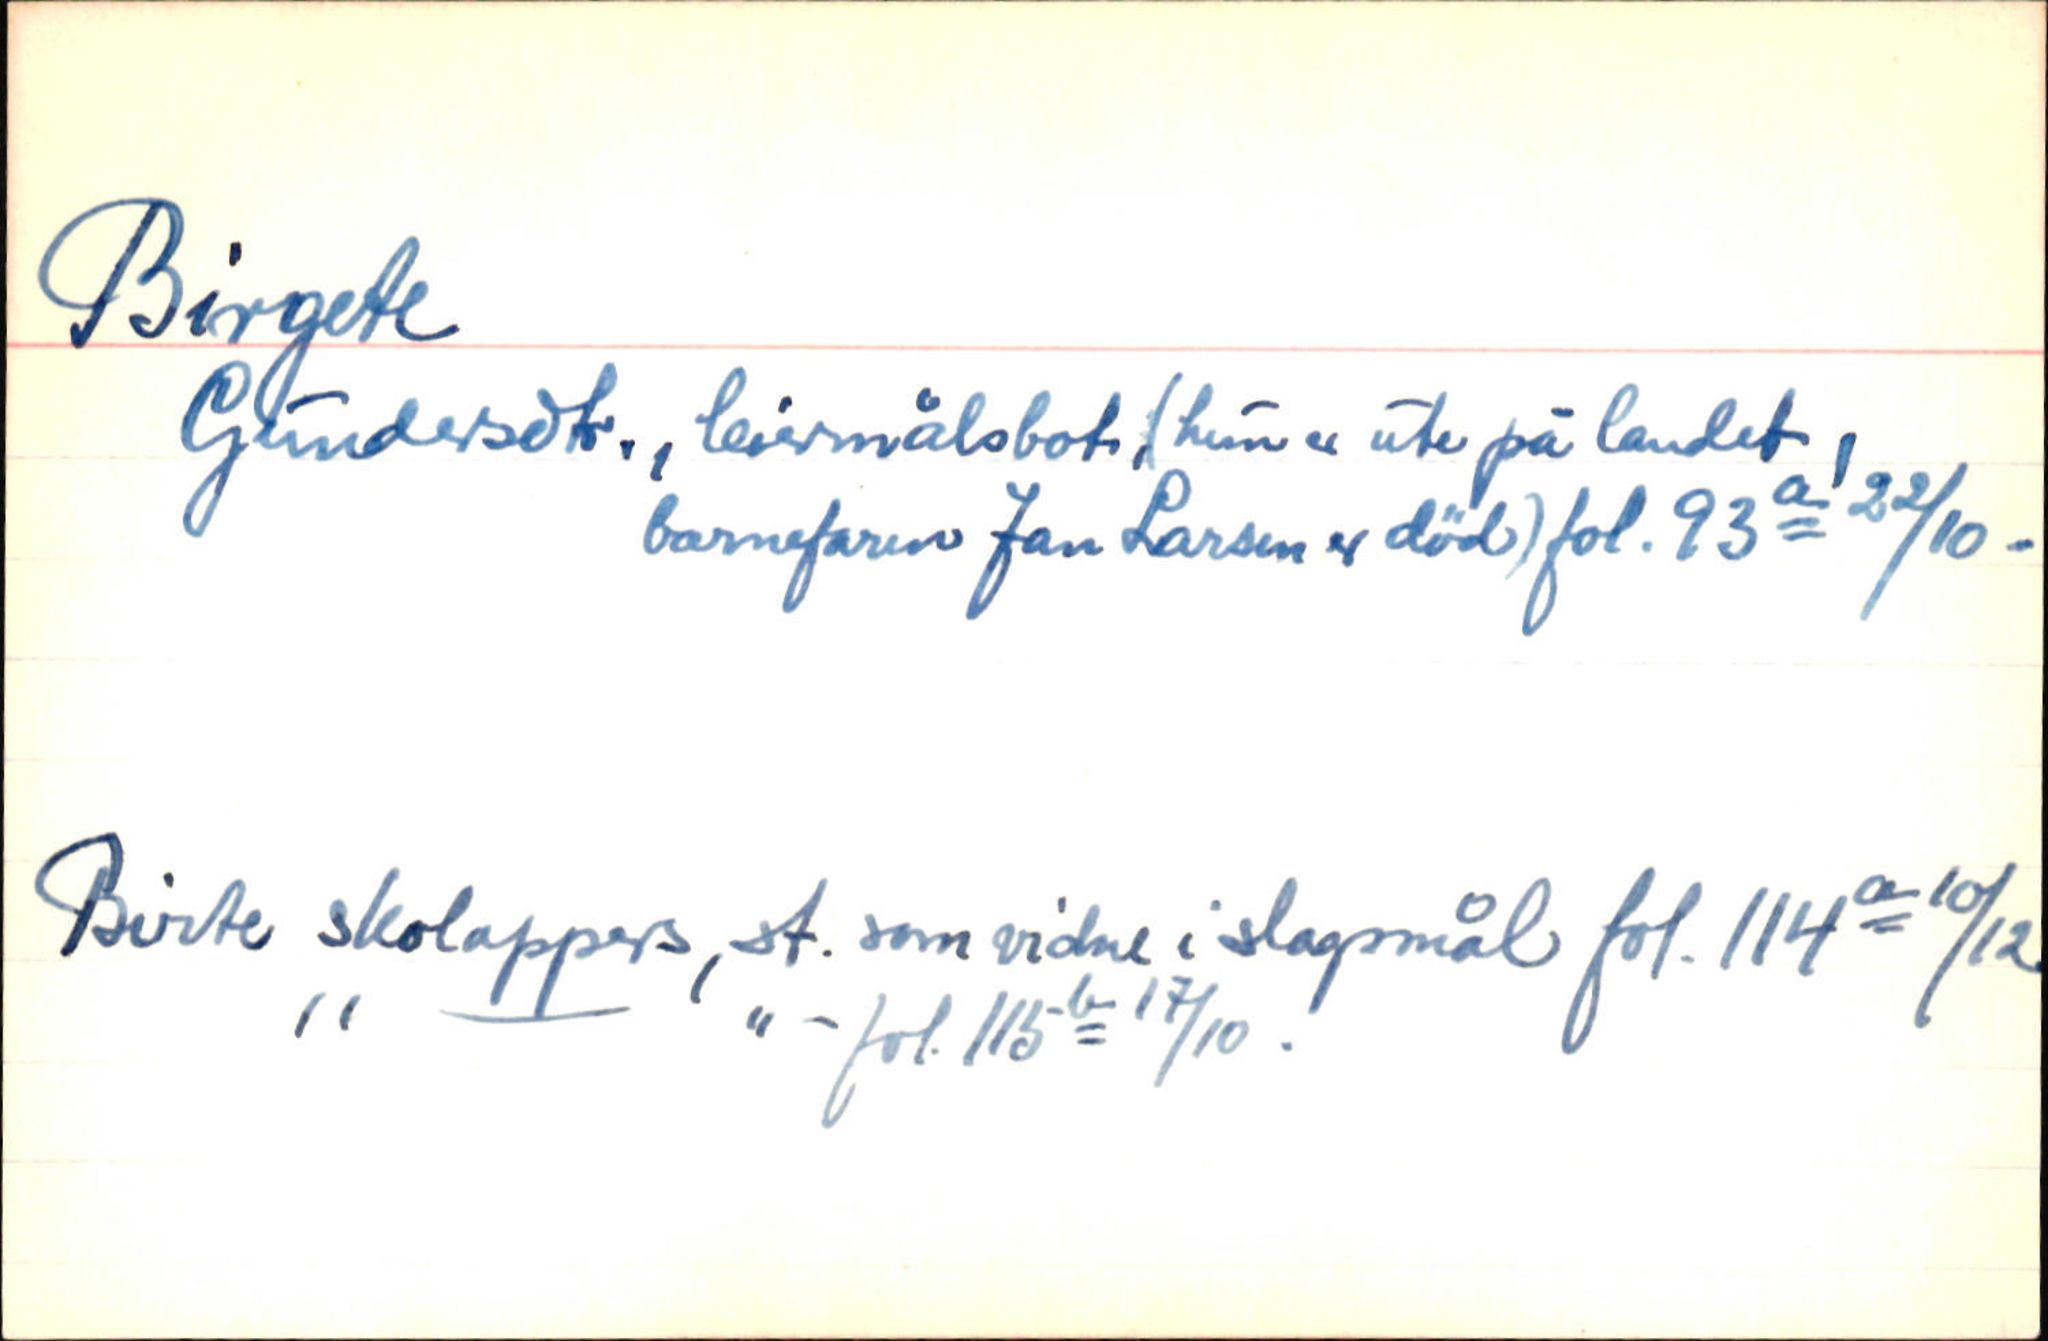 Birgete
Gundersdtr., leiermålsbot, (hun er ute på landet,
barnefaren Jan Larsen er död) fol. 93a 22/10-
Birte skolappers, st. som vidne i slagsmål fol. 114a 10/12.
" — " - fol. 115b 17/10.